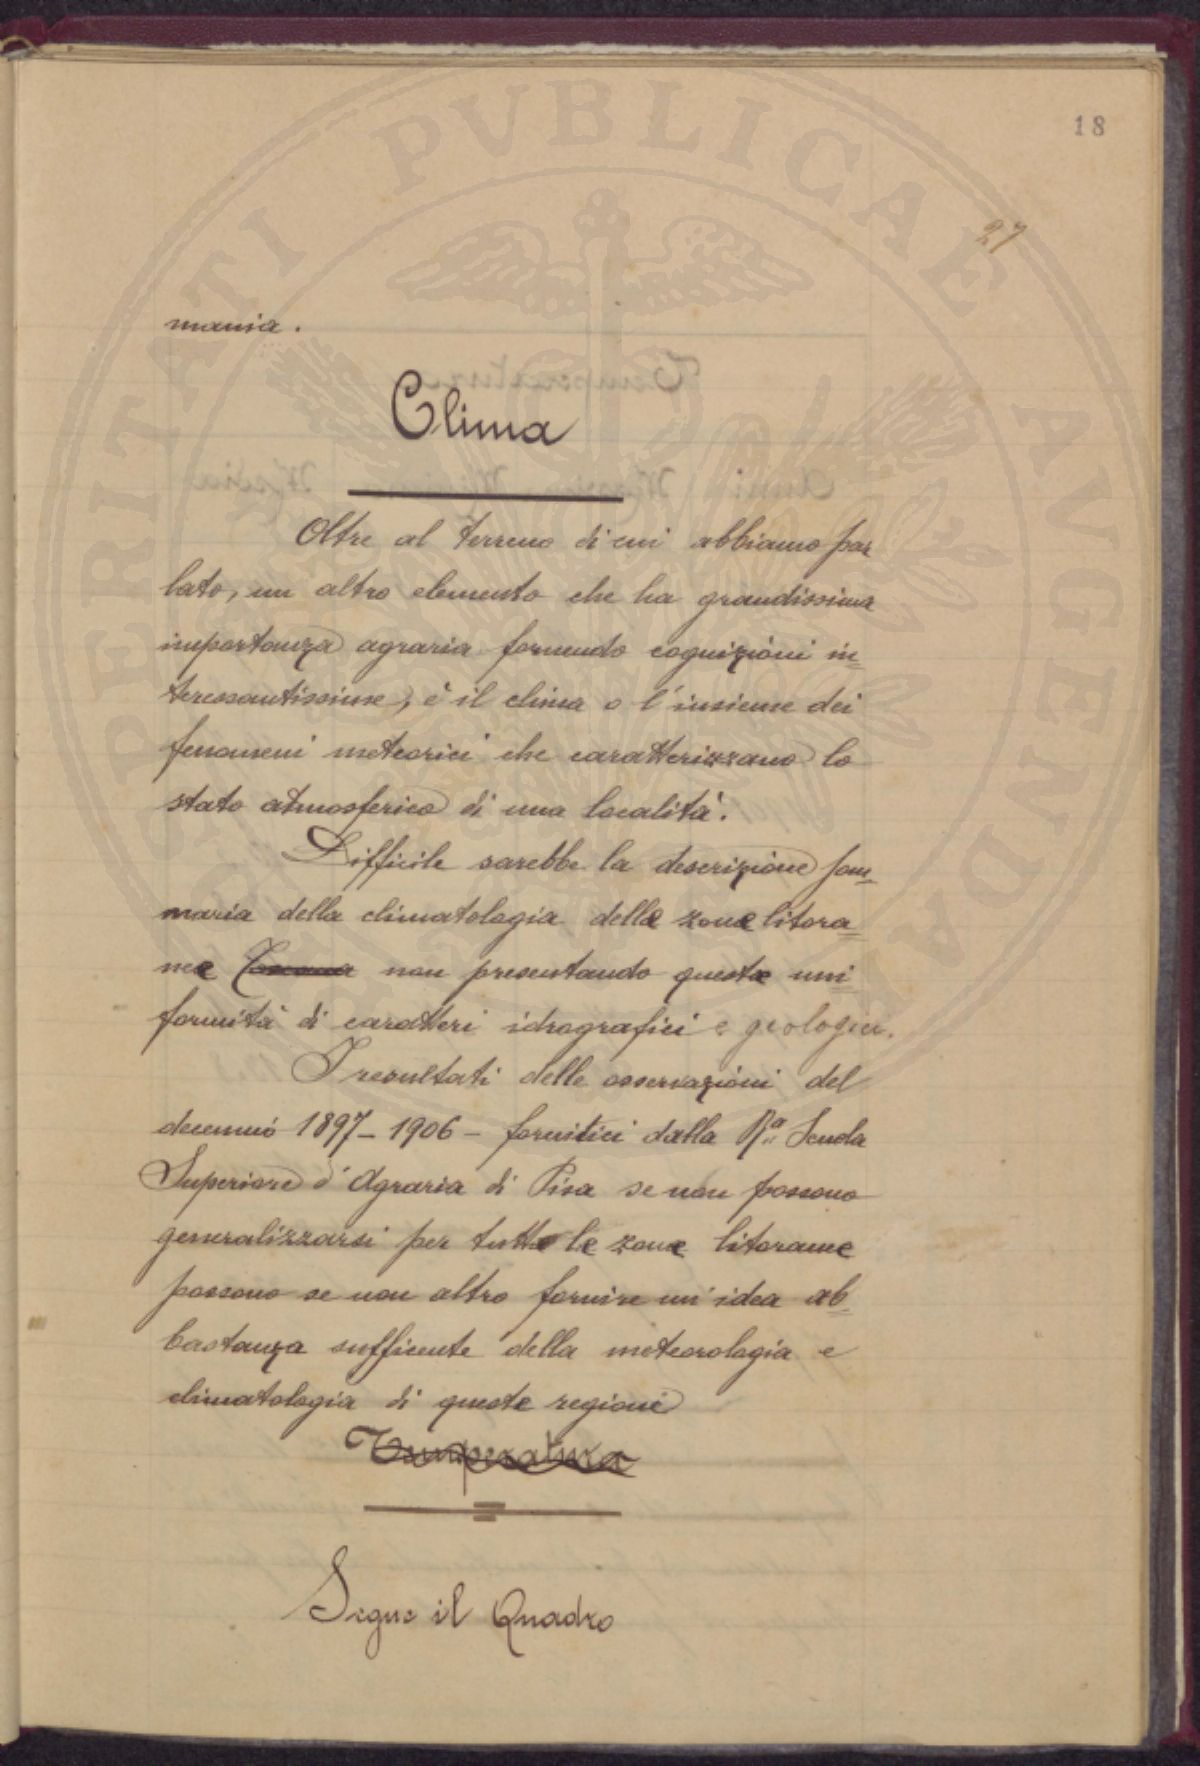 18
27
mania.
Clima
Oltre al terreno di cui abbiamo par
lato, un altro elemento che ha grandissima
importanza agraria fornendo cognizioni in=
teressantissime, è il clima o l'insieme dei
fenomeni meteorici che caratterizzano lo
stato atmosferico di una località.
Difficile sarebbe la descrizione som=
maria della climatologia delle zone litora=
nee Toscana non presentando queste uni=
formità di caratteri idrografici e geologici.
I resultati delle osservazioni del
decennio 1897-1906- fornitici dalla Ra Scuola
Superiore d'Agraria di Pisa se non possono
generalizzarsi per tutte le zone litoranee
possono se non altro fornire un'idea ab=
bastanza sufficente della meteorologia e
climatologia di queste regioni
Temperatura
Segue il Quadro
PERITATI PVBLICAE AVGENDA